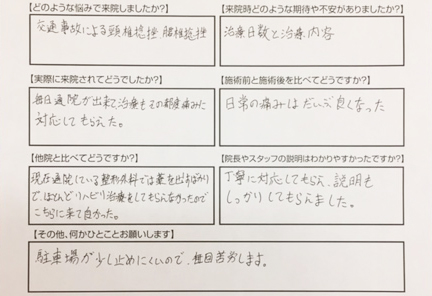 【どのような悩みで来院しましたか?】
交通事故による頸椎捻挫 腰椎捻挫
【来院時どのような期待や不安がありましたか?】
治療日数と治療内容
【実際に来院されてどうでしたか?】
毎日通院が出来て治療もその都度痛みに
対応してもらえた。
【施術前と施術後を比べてどうですか?】
日常の痛みはだいぶ良くなった
【他院と比べてどうですか?】
現在通院している整形外科では薬を出すばかり
で、ほとんどリハビリ治療をしてもらえなかったので
こちらに来て良かった。
【院長やスタッフの説明はわかりやすかったですか?】
丁寧に対応してもらえ、説明も
しっかりしてもらえました。
【その他、何かひとことお願いします】
駐車場が少し止めにくいので、毎回苦労します。